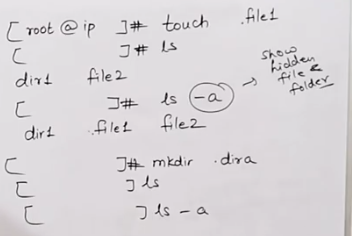 [root@ip ]# touch .file1
[ ]# ls
dir1 file2
[ ]# ls -a → show hidden file & folder
dir1 .file1 file2
[ ]# mkdir .dira
[ ] ls
[ ] ls -a